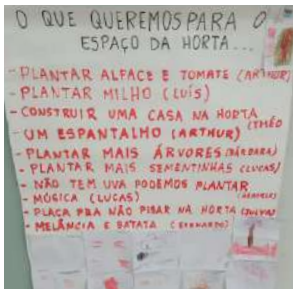 O QUE QUEREMOS PARA O
ESPAÇO DA HORTA...
- PLANTAR ALFACE E TOMATE (ARTHUR)
- PLANTAR MILHO (LUÍS)
- CONSTRUIR UMA CASA NA HORTA (THÉO
- UM ESPANTALHO (ARTHUR)
- PLANTAR MAIS ÁRVORES (BÁRBARA)
- PLANTAR MAIS SEMENTINHAS (LUCAS)
- NÃO TEM UVA PODEMOS PLANTAR
- MÚSICA (LUCAS)
- PLACA PRA NÃO PISAR NA HORTA
- MELÂNCIA E BATATA (BERNARDO)